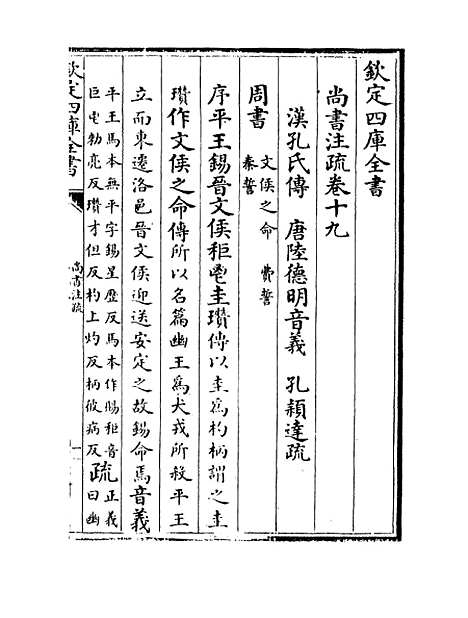 欽定四庫全書
尚書注疏卷十九
漢孔氏傳　唐陸德明音義　孔穎達疏
周書
文侯之命　費誓
秦誓
序平王錫晉文侯秬鬯圭瓚傳以圭為杓柄謂之圭
瓚作文侯之命傳所以名篇幽王為犬戎所殺平王
立而東遷洛邑晉文侯迎送安定之故錫命焉音義
平王馬本無平字錫星歷反馬本作賜秬音
巨鬯勑亮反瓚才但反杓上灼反柄彼病反
疏
正義
曰幽
欽定四庫全書
尚書注疏